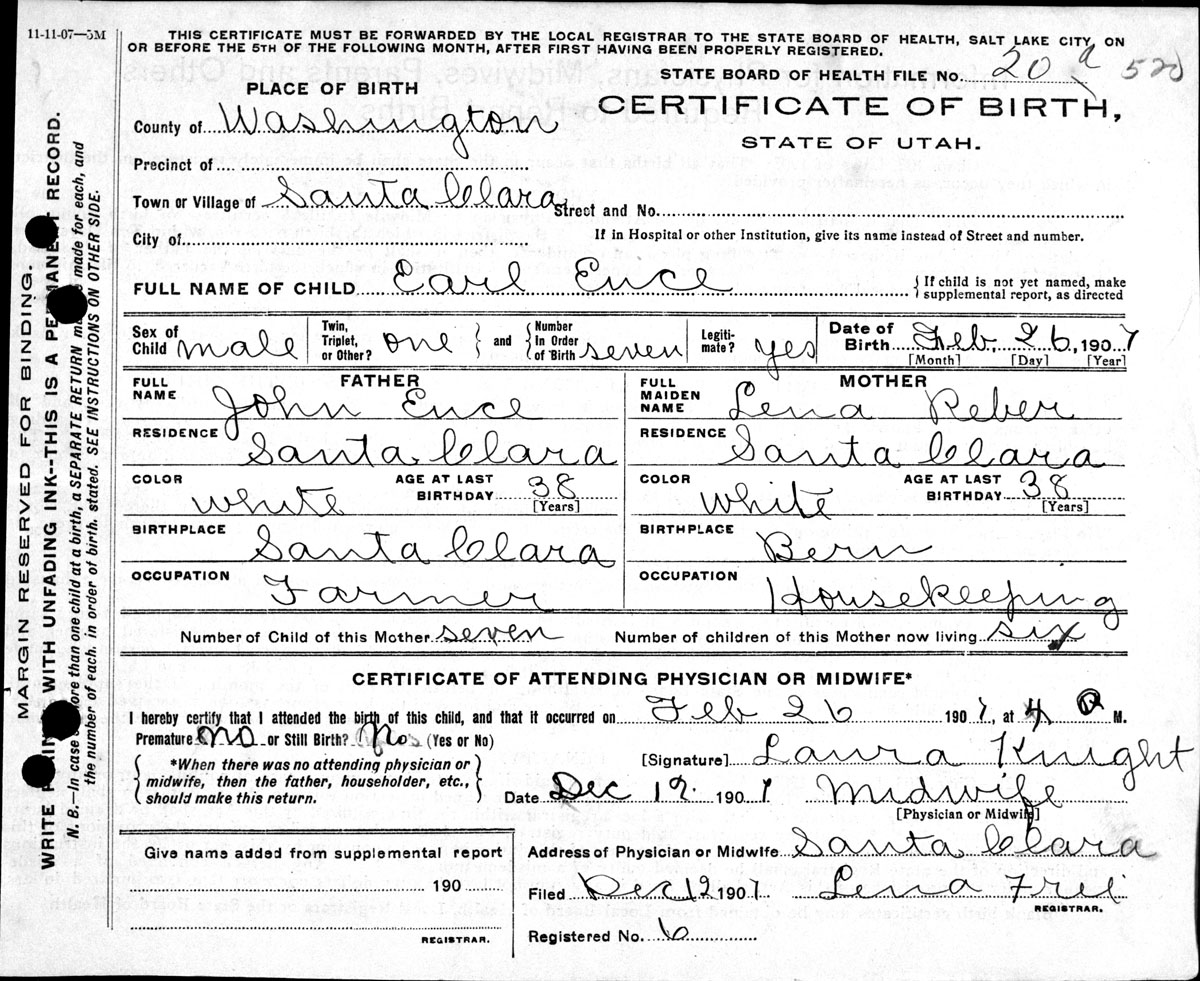 11-11-07—5M
THIS CERTIFICATE MUST BE FORWARDED BY THE LOCAL REGISTRAR TO THE STATE BOARD OF HEALTH, SALT LAKE CITY, ON
OR BEFORE THE 5TH OF THE FOLLOWING MONTH, AFTER FIRST HAVING BEEN PROPERLY REGISTERED.
STATE BOARD OF HEALTH FILE No. 20 a 520
PLACE OF BIRTH
CERTIFICATE OF BIRTH,
STATE OF UTAH.
County of Washington
Precinct of
Town or Village of Santa Clara Street and No.
City of If in Hospital or other Institution, give its name instead of Street and number.
FULL NAME OF CHILD Earl Ence { If child is not yet named, make
supplemental report, as directed
Sex of Child male Twin, Triplet, or Other? one } and { Number In Order of Birth seven Legiti- mate? yes Date of Birth Feb. 26, 1907
[Month] [Day] [Year]
FATHER
FULL NAME John Ence
RESIDENCE Santa Clara
COLOR white AGE AT LAST BIRTHDAY 38
[Years]
BIRTHPLACE Santa Clara
OCCUPATION Farmer
MOTHER
FULL MAIDEN NAME Lena Reber
RESIDENCE Santa Clara
COLOR white AGE AT LAST BIRTHDAY 38
[Years]
BIRTHPLACE Bern
OCCUPATION Housekeeping
Number of Child of this Mother seven Number of children of this Mother now living six
CERTIFICATE OF ATTENDING PHYSICIAN OR MIDWIFE*
I hereby certify that I attended the birth of this child, and that it occurred on Feb 26 1907, at 4 M.
Premature no or Still Birth? No (Yes or No)
{ *When there was no attending physician or
midwife, then the father, householder, etc.,
should make this return. }
[Signature] Laura Knight
Date Dec 19. 1907 Midwife
[Physician or Midwife]
Address of Physician or Midwife Santa Clara
Filed Dec 12 1907 Lena Frei
REGISTRAR.
Registered No. 6
Give name added from supplemental report
190
REGISTRAR.
MARGIN RESERVED FOR BINDING.
WRITE PLAINLY WITH UNFADING INK--THIS IS A PERMANENT RECORD.
N. B.—In case of more than one child at a birth, a SEPARATE RETURN must be made for each, and
the number of each, in order of birth, stated. SEE INSTRUCTIONS ON OTHER SIDE.